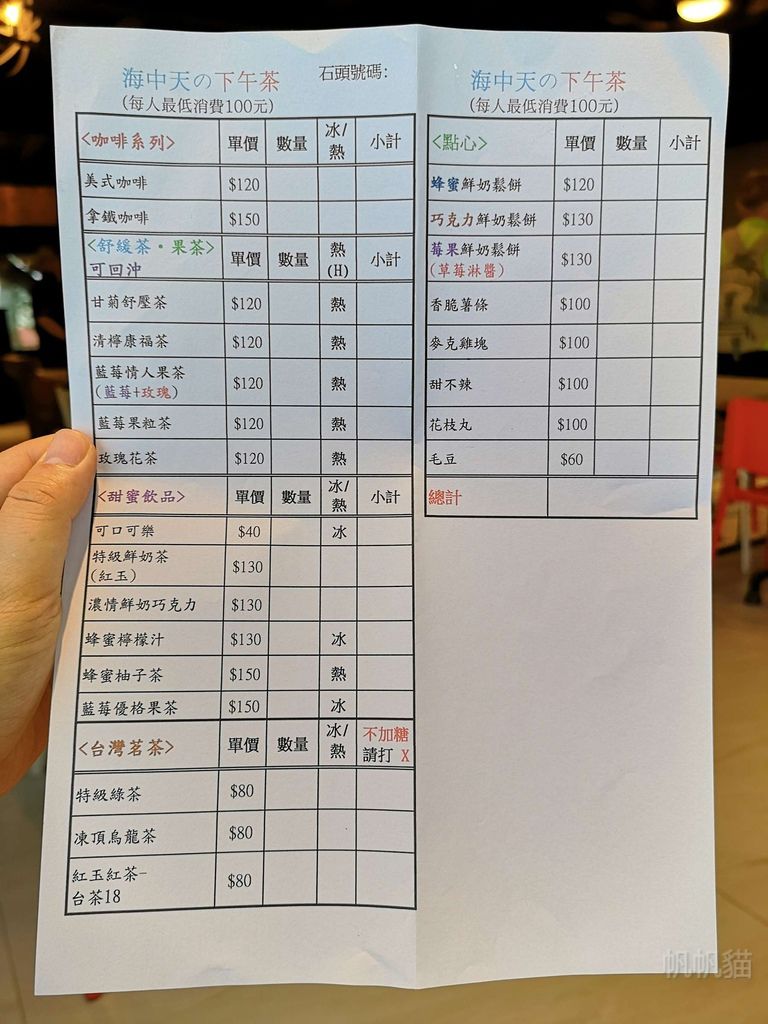 海中天の下午茶 石頭號碼:
(每人最低消費100元)
<咖啡系列> 單價 數量 冰/熱 小計
美式咖啡 $120
拿鐵咖啡 $150
<舒緩茶・果茶> 可回沖 單價 數量 熱(H) 小計
甘菊舒壓茶 $120 熱
清檸康福茶 $120 熱
藍莓情人果茶 (藍莓+玫瑰) $120 熱
藍莓果粒茶 $120 熱
玫瑰花茶 $120 熱
<甜蜜飲品> 單價 數量 冰/熱 小計
可口可樂 $40 冰
特級鮮奶茶 (紅玉) $130
濃情鮮奶巧克力 $130
蜂蜜檸檬汁 $130 冰
蜂蜜柚子茶 $150 熱
藍莓優格果茶 $150 冰
<台灣茗茶> 單價 數量 冰/熱 不加糖請打 X
特級綠茶 $80
凍頂烏龍茶 $80
紅玉紅茶-台茶18 $80
海中天の下午茶
(每人最低消費100元)
<點心> 單價 數量 小計
蜂蜜鮮奶鬆餅 $120
巧克力鮮奶鬆餅 $130
莓果鮮奶鬆餅 (草莓淋醬) $130
香脆薯條 $100
麥克雞塊 $100
甜不辣 $100
花枝丸 $100
毛豆 $60
總計
帆帆貓